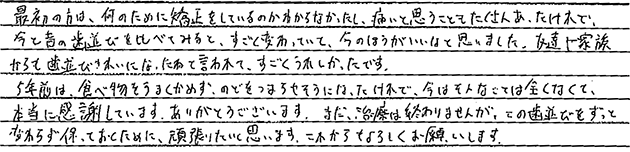 最初の方は、何のために矯正をしているのかわからなかったし、痛いと思うことでたくさんあったけれど、
今と昔の歯並びを比べてみると、すごく変わっていて、今のほうがいいなと思いました。友達や家族
からも歯並びきれいになったねと言われて、すごくうれしかったです。
5年前は、食べ物をうまくかめず、のどをつまらせそうになったけれど、今はそんなことは全くなくて、
本当に感謝しています。ありがとうございます。まだ、治療は終わりませんが、この歯並びをずっと
変わらず保っておくために、頑張りたいと思います。これからもよろしくお願いします。